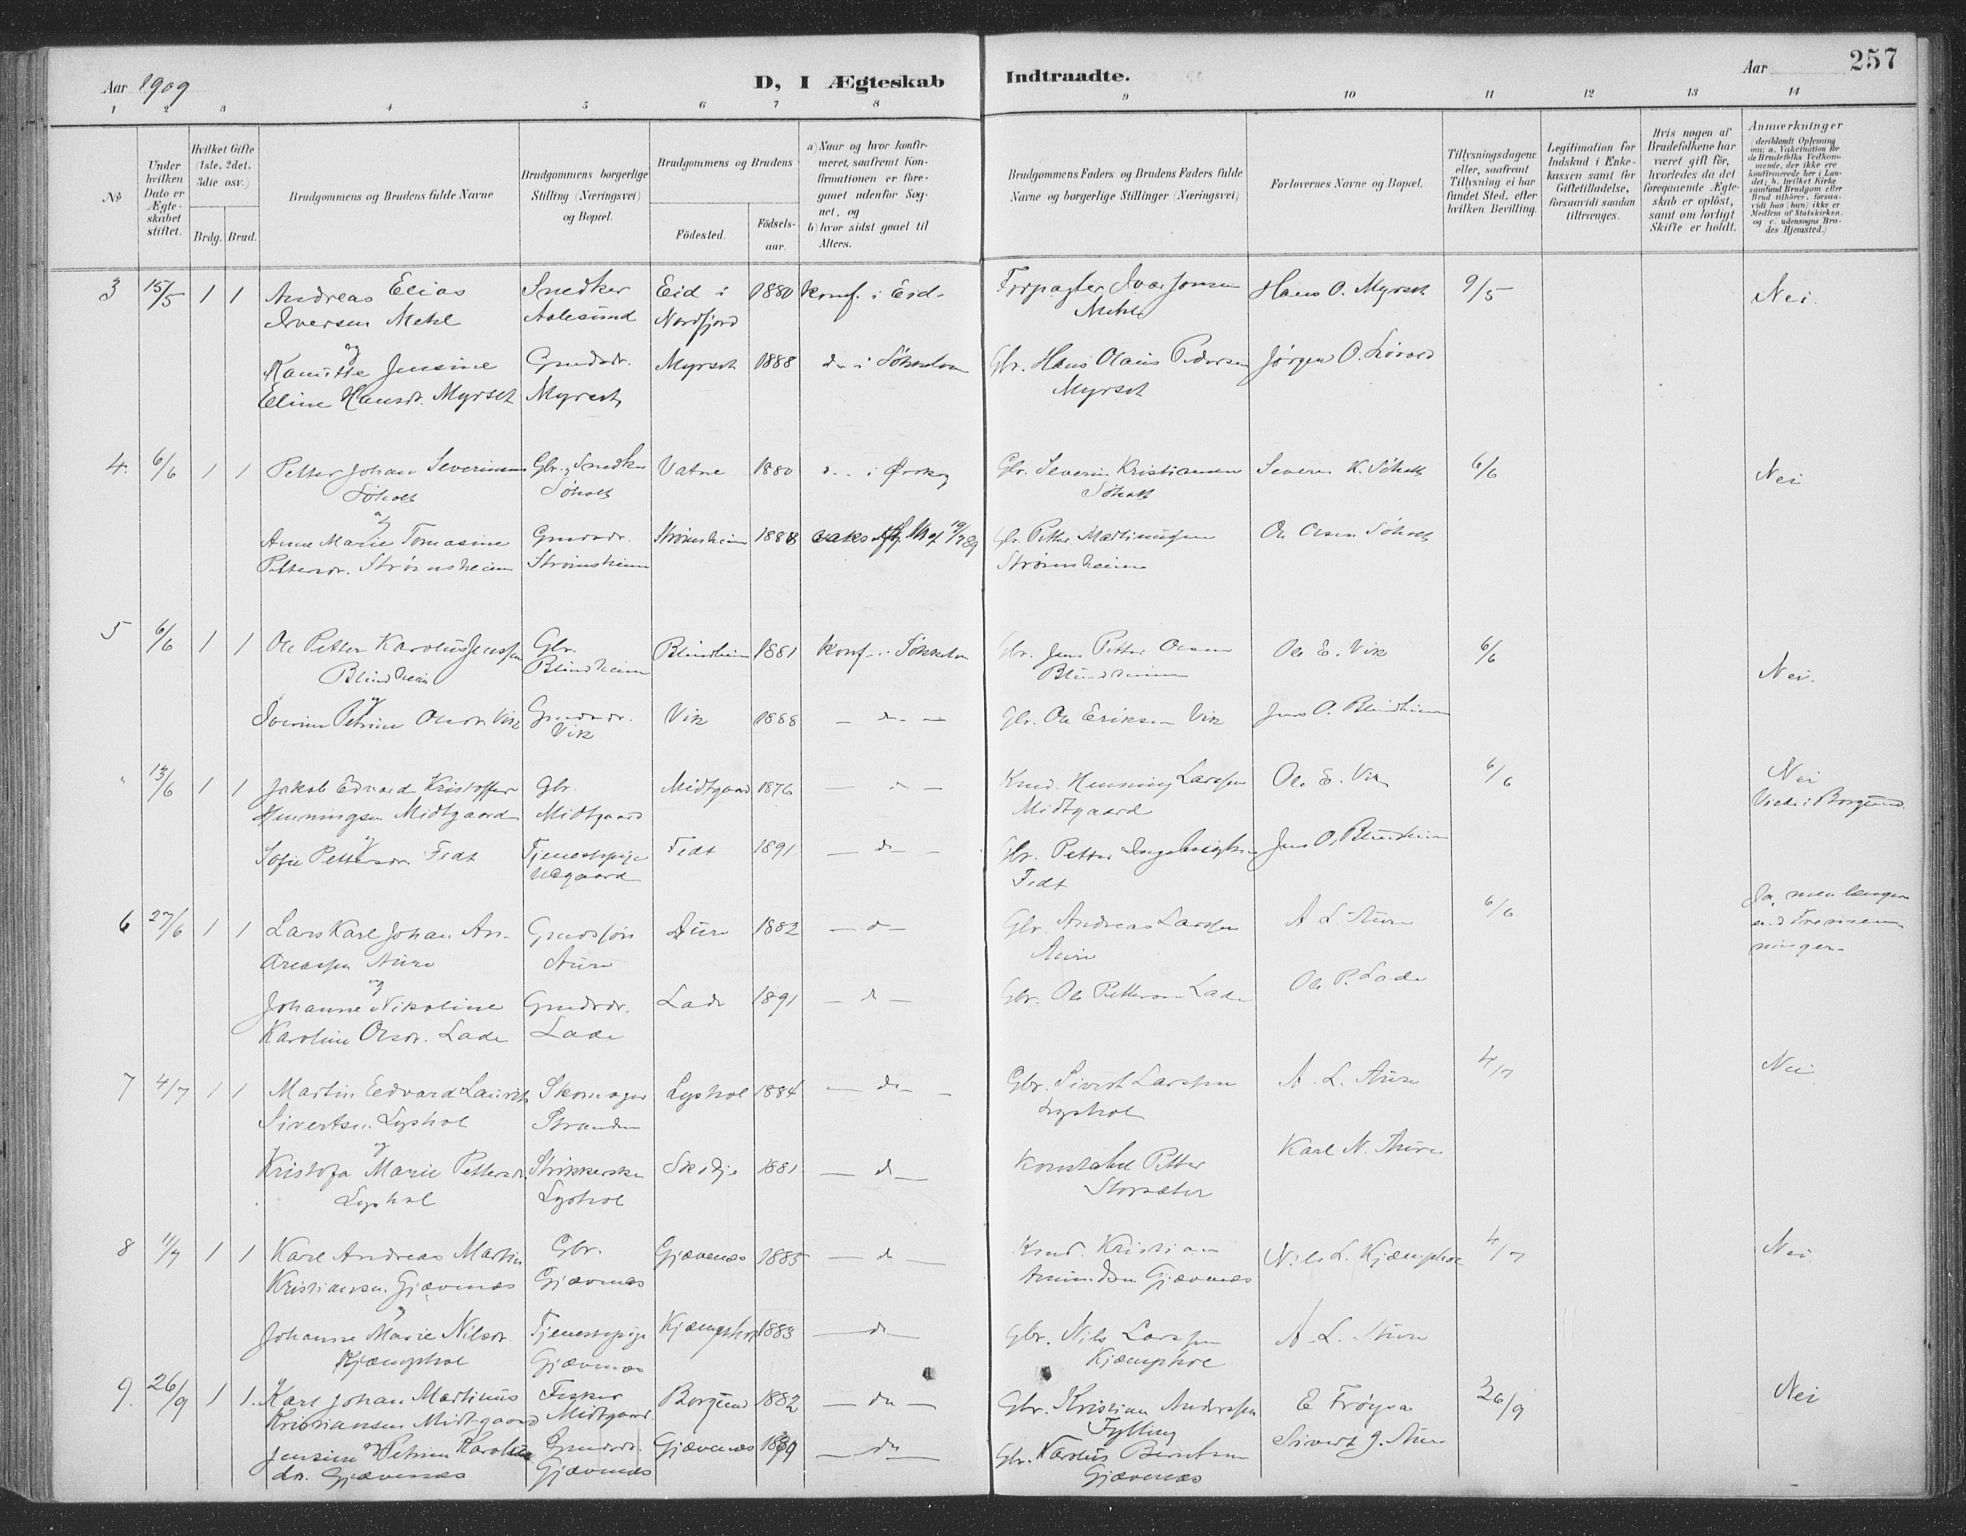 Aar 1909
D, I Ægteskab Indtraadte.
Aar
257
1 2 3 4 5 6 7 8 9 10 11 12 13 14
No
Under hvilken Dato er Ægteskabet stiftet.
Hvilket Gifte (1ste, 2det, 3die osv.)
Brdg. Brud.
Brudgommens og Brudens fulde Navne
Brudgommens borgerlige Stilling (Næringsvei) og Bopæl.
Brudgommens og Brudens
Fødested.
Fødselsaar.
a) Naar og hvor konfirmeret, saafremt Konfirmationen er foregaaet udenfor Sognet, og
b) hvor sidst gaael til Alters.
Brudgommens Faders og Brudens Faders fulde Navne og borgerlige Stillinger (Næringsvei)
Forlovernes Navne og Bopæl.
Tillysningsdagene eller, saafremt Tillysning ei har fundet Sted, efter hvilken Bevilling.
Legitimation for Indskud i Enkekassen samt for Giftetilladelse, forsaavidt saadan tiltrænges.
Hvis nogen af Brudefolkene har været gift før, hvorledes da det foregaaende Ægteskab er opløst, samt om lovligt Skifte er holdt.
Anmærkninger (deriblandt Oplysning om: a. Vakcination for de Brudefolks Vedkommende, der ikke ere konfirmerede her i Landet; b. hvilket Kirkesamfund Brudgom eller Brud tilhører, forsaavidt han (hun) ikke er Medlem af Statskirken, og c. udensogns Brudes Hjemsted.)
3 15/5 1 1 Andreas Elias Snedker Eid i 1880 Konf. i Eid Forpagter Ivar Jonsen Hans O. Myrset 9/5 Nei.
Iversen Mehl Aalesund Nordfjord Mehl
og
Jensine Grudsdr. Myrset 1888 do i Gbr. Hans Olaus Pedersen Jørgen O.
Eline Hansdr. Myrset Myrset Myrset
4. 6/6 1 1 Petter Johan Severinsen Gbr. Snedker Vatne 1880 i Ørskog Gbr. Severin Kristiansen Severin K. Søholt 6/6 Nei
Søholt Søholt Søholt
og
Anne Marie Tomasine Grudsdr. Strømsheim 1888 Gbr. Petter Martinussen Ole Olsen Søholt
Pettersdr. Strømsheim Strømsheim Strømsheim
5 6/6 1 1 Ole Petter Karolus Jenssen Gbr. Blindheim 1881 Konf. Gbr. Jens Petter Olsen Ole E. Vik 6/6 Nei.
Blindheim Blindheim Blindheim
og
Petrine Olsdr. Vik Grudsdr. Vik 1888 — do — Gbr. Ole Eriksen Vik Jens O. Blindheim
Vik
" 13/6 1 1 Jakob Edvard Kristoffer Gbr. Midtgaard 1876 — do — Knud Henning Larssen Ole E. Vik 6/6 Nei
Henningsen Midtgaard Midtgaard Midtgaard Viede i Borgund
og
Sofie Pettersdr Fedt Tjenestepige Fedt 1891 — do — Gbr. Petter Jens O. Blindheim
Fedt
6 27/6 1 1 Lars Karl Johan An- Grudssøn Aure 1882 — do — Gbr. Andreas Larssen A L. Aure 6/6 Ja, men
dreassen Aure Aure Aure
og
Johanne Nikoline Grudsdr. Lade 1891 — do — Gbr. Ole Petterson Lade Ole P. Lade
Karoline Olsdr. Lade Lade
7 4/7 1 1 Martin Edvard Laurits Skomager Lyshol 1884 — do — Gbr. Sivert Larssen A. L. Aure 4/7 Nei
Sivertsen Lyshol Stranden Lyshol
og
Kristofa Marie Pettersdr. Strikkerske Skodje 1881 — do — Konstabel Petter Karl N. Aure
Lyshol Lyshol Storsæter
8 11/7 1 1 Karl Andreas Martin Gbr. Gjævenes 1885 — do — Knud Kristian Nils L. Kjæmphol 4/7 Nei
Kristiansen Gjævenes Gjævenes Gjævenes
og
Johanne Marie Nilsdr Tjenestepige Kjæmphol 1883 — do — Gbr. Nils Larssen A. L. Aure
Kjæmphol Gjævenes Kjæmphol
9. 26/9 1 1. Karl Johan Martinus Fisker Borgund 1882 — do — Gbr. Kristian Anderssen E Frøysa 26/9 Nei
Kristiansen Midtgaard Midtgaard. Fylling
og
Jensine Petrine Karolus Grudsdr. Gjævenes — do — Gbr. Karolus Berntsen Sivert J. Aure
dr. Gjævenes Gjævenes Gjævenes